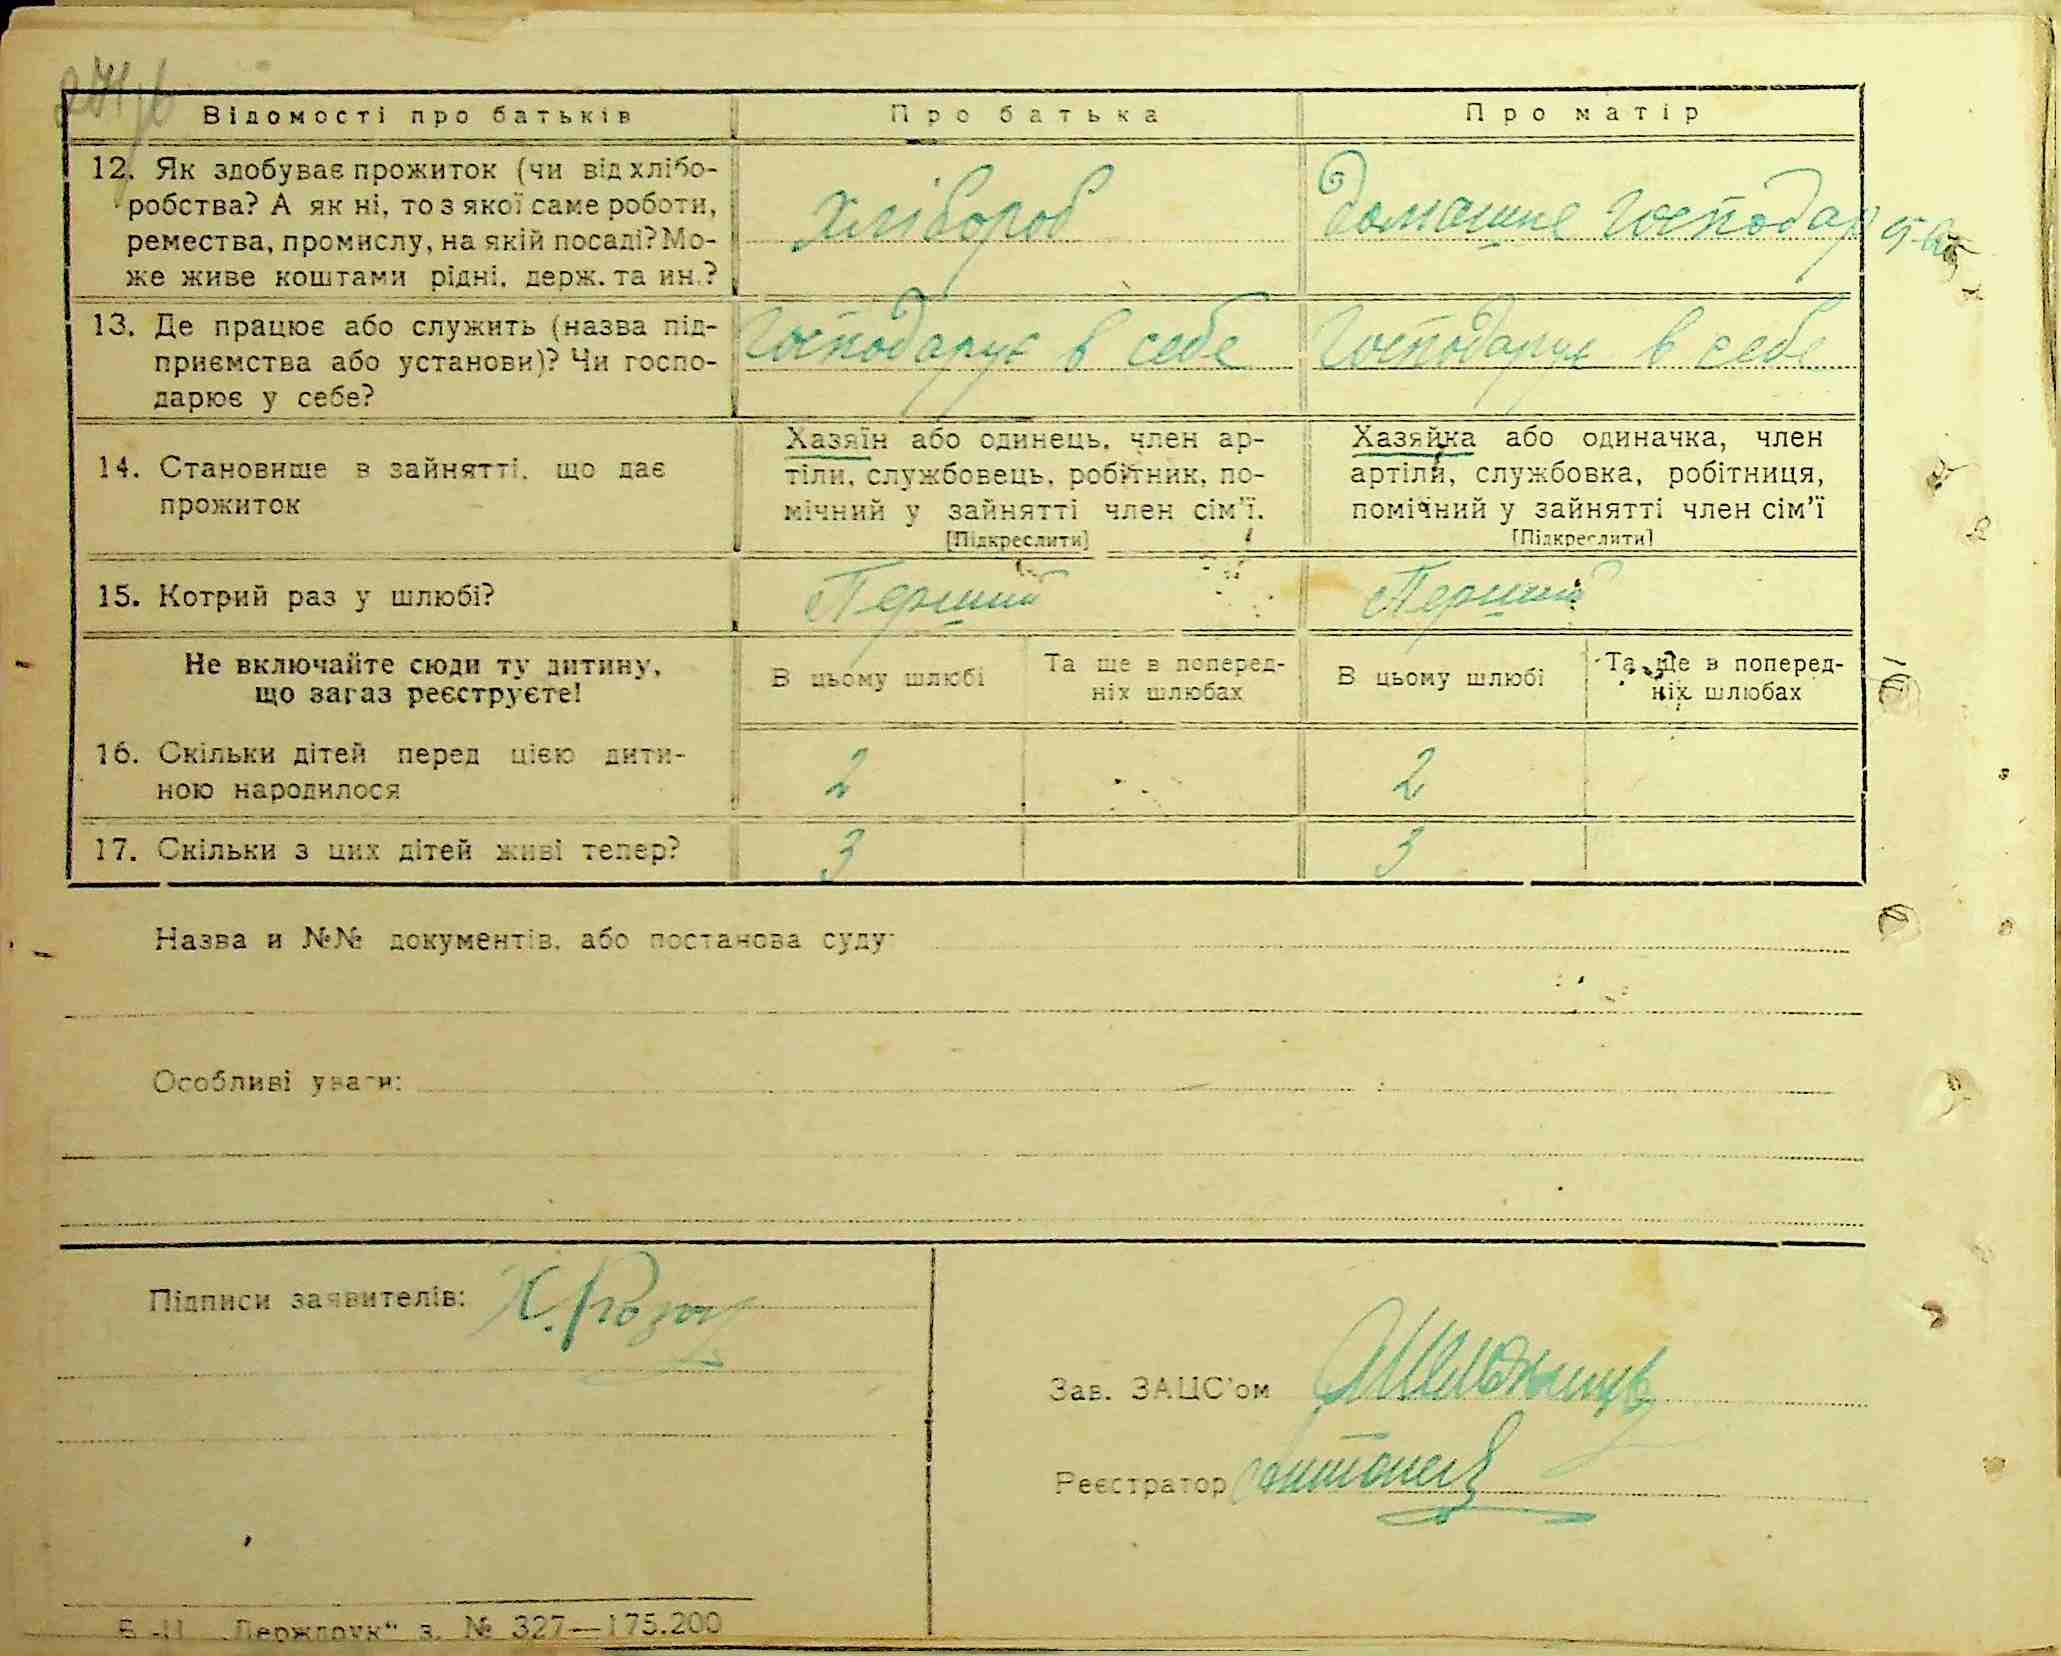 Відомості про батьків Про батька Про матір
12. Як здобуває прожиток (чи від хлібо-
робства? А як ні, то з якої саме роботи,
ремества, промислу, на якій посаді? Мо-
же живе коштами рідні, держ. та ин.?
хлібороб
Домашнє господар
13. Де працює або служить (назва під-
приємства або установи)? Чи госпо-
дарює у себе?
Господарує в себе
Господарує в себе
14. Становище в зайнятті, що дає
прожиток
Хазяїн або одинець, член ар-
тіли, службовець, робітник, по-
мічний у зайнятті член сім'ї.
[Підкреслити]
Хазяйка або одиначка, член
артіли, службовка, робітниця,
помічний у зайнятті член сім'ї
[Підкреслити]
15. Котрий раз у шлюбі?
Перший
Перший
Не включайте сюди ту дитину,
що зараз реєструєте!
В цьому шлюбі
Та ще в поперед-
ніх шлюбах
В цьому шлюбі
Та ще в поперед-
ніх шлюбах
16. Скільки дітей перед цією дити-
ною народилося
2
2
17. Скільки з цих дітей живі тепер?
3
3
Назва и №№ документів, або постанова суду
Особливі уваги:
Підписи заявителів:
Зав. ЗАЦС'ом
Реєстратор
„Держдрук“ з. № 327—175.200